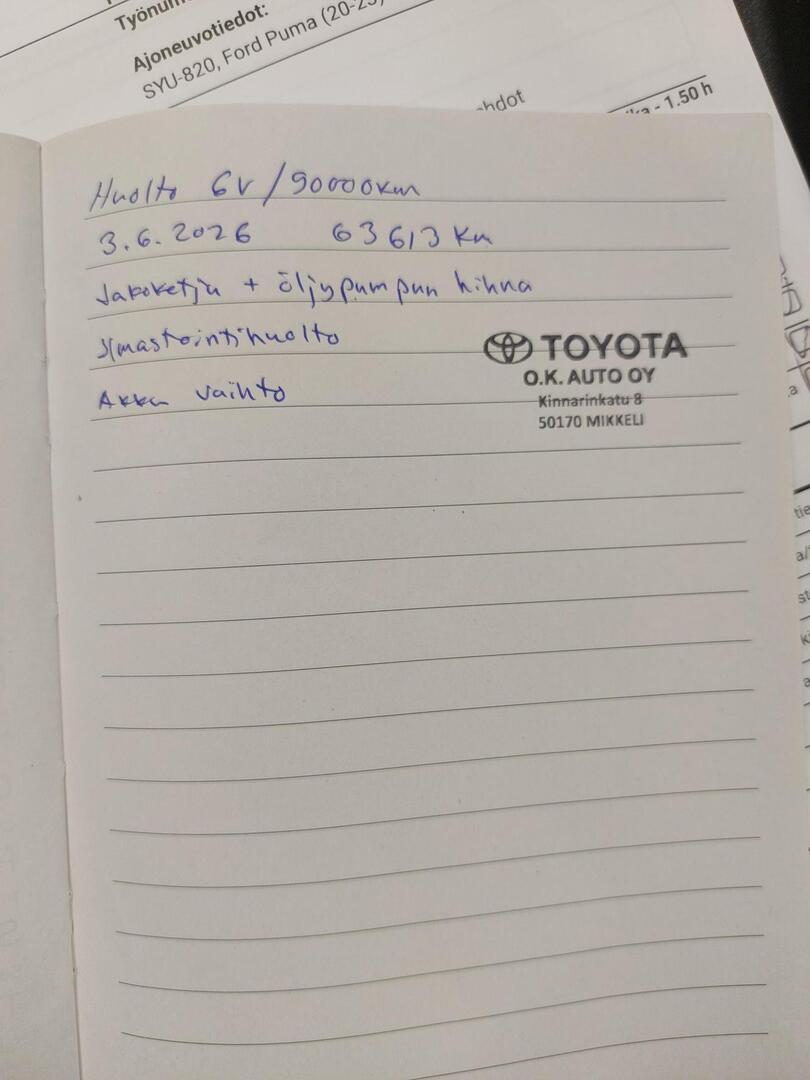 Ajoneuvotiedot:
SYU-820, Ford Puma (20-23)
- 1.50 h
Huolto 6v/90000km
3.6.2026 63613 km
Jakoketju + öljypumpun hihna
Ilmastointihuolto
Akku vaihto
TOYOTA
O.K. AUTO OY
Kinnarinkatu 8
50170 MIKKELI